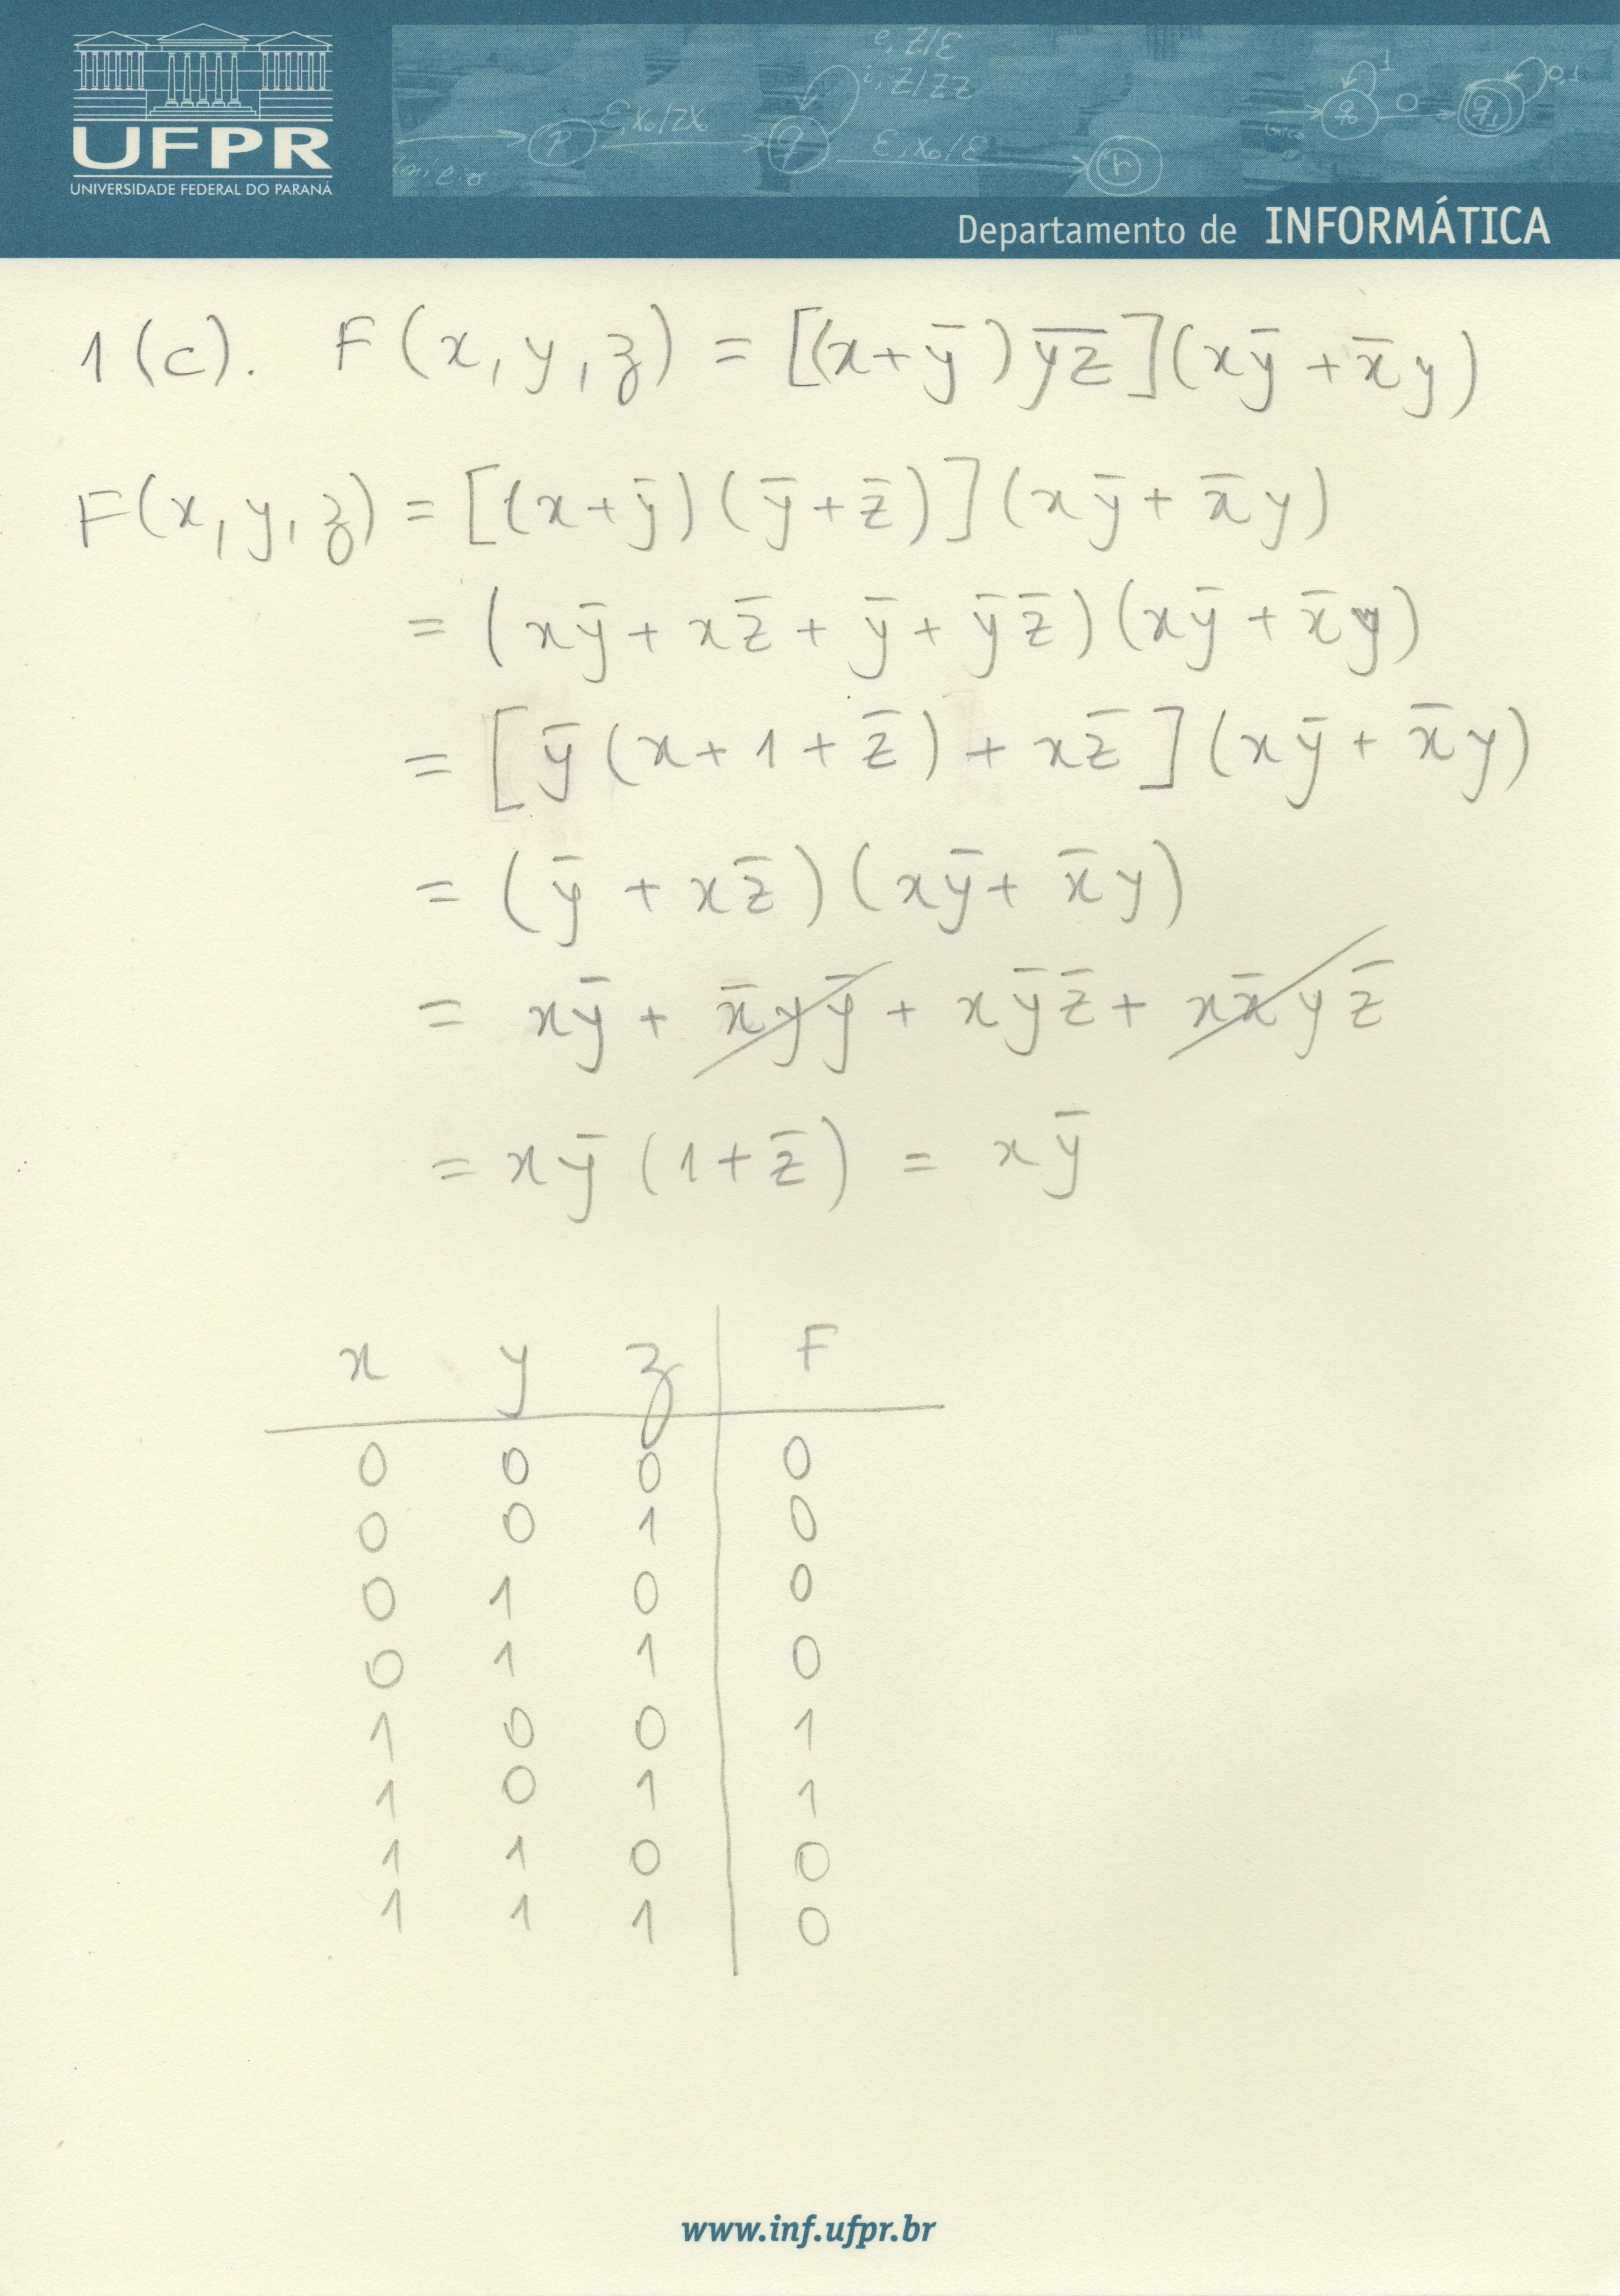 UFPR
UNIVERSIDADE FEDERAL DO PARANÁ
e, Z/ε
i, Z/ZZ
ε, X₀/ZX₀
ε, X₀/ε
p
q
r
q₀
q₁
1
0
0,1
Departamento de INFORMÁTICA
1(c). F(x, y, z) = [(x+ȳ) y̅z̅](xȳ + x̄y)
F(x, y, z) = [(x+ȳ)(ȳ+z̄)](xȳ + x̄y)
= (xȳ + xz̄ + ȳ + ȳz̄)(xȳ + x̄y)
= [ȳ(x+1+z̄) + xz̄](xȳ + x̄y)
= (ȳ + xz̄)(xȳ + x̄y)
= xȳ + x̄yȳ + xȳz̄ + xx̄yz̄
= xȳ(1+z̄) = xȳ
x y z F
0 0 0 0
0 0 1 0
0 1 0 0
0 1 1 0
1 0 0 1
1 0 1 1
1 1 0 0
1 1 1 0
www.inf.ufpr.br